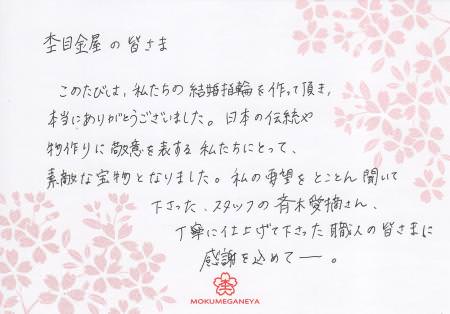 杢目金屋の皆さま
このたびは、私たちの結婚指輪を作って頂き、
本当にありがとうございました。日本の伝統や
物作りに敬意を表する私たちにとって、
素敵な宝物となりました。私の要望をとことん聞いて
下さった、スタッフの斉木愛摘さん、
丁寧に仕上げて下さった職人の皆さまに
感謝を込めて――。
MOKUMEGANEYA